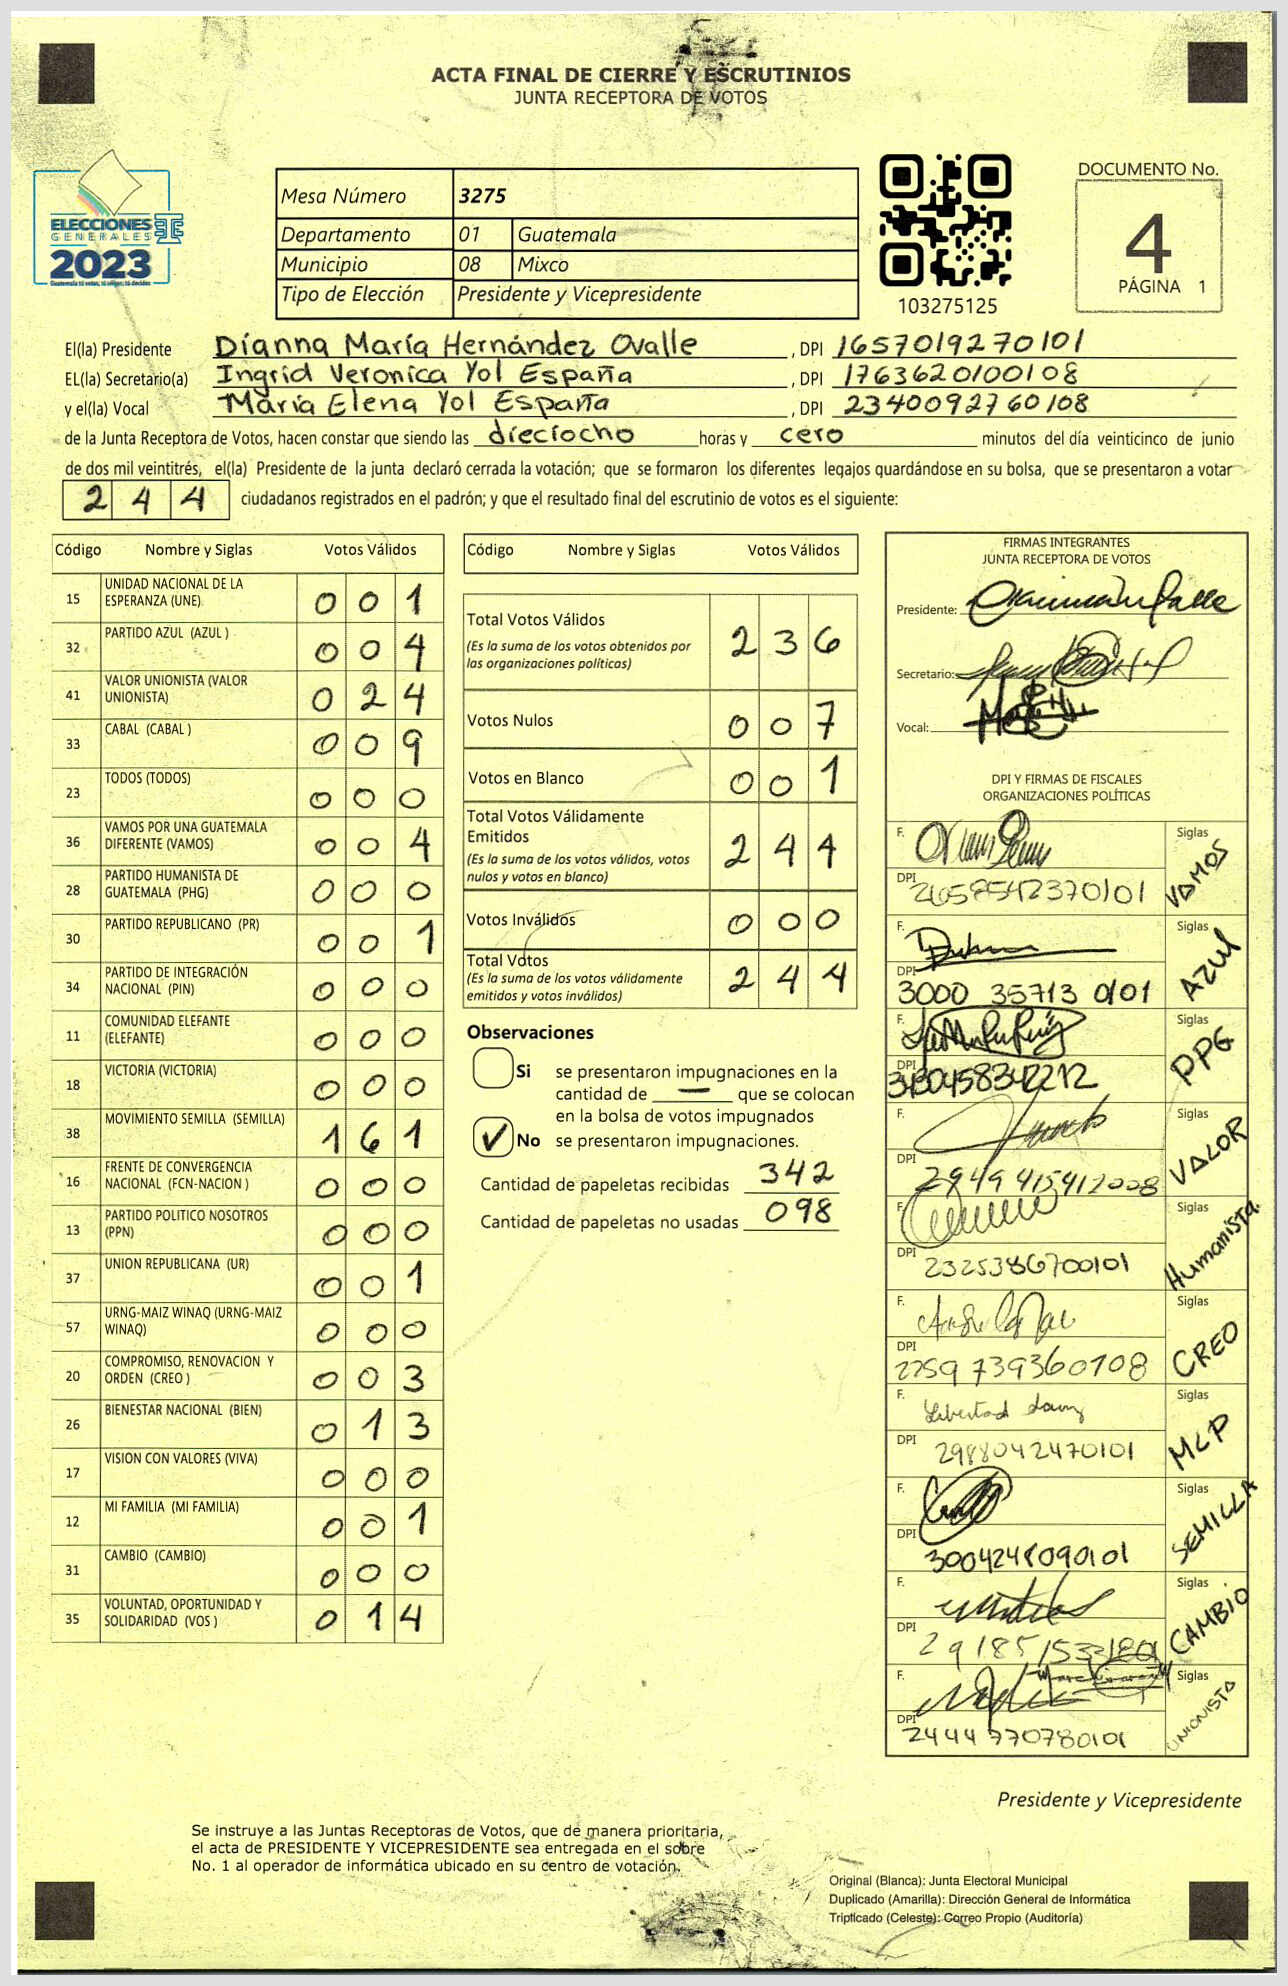 ACTA FINAL DE CIERRE Y ESCRUTINIOS
JUNTA RECEPTORA DE VOTOS
ELECCIONES
GENERALES
2023
Guatemala tú votas, tú eliges, tú decides
Mesa Número 3275
Departamento 01 Guatemala
Municipio 08 Mixco
Tipo de Elección Presidente y Vicepresidente
103275125
DOCUMENTO No.
4
PÁGINA 1
El(la) Presidente Dianna María Hernández Ovalle , DPI 1657019270101
EL(la) Secretario(a) Ingrid Veronica Yol España , DPI 1763620100108
y el(la) Vocal María Elena Yol España , DPI 2340092760108
de la Junta Receptora de Votos, hacen constar que siendo las dieciocho horas y cero minutos del día veinticinco de junio
de dos mil veintitrés, el(la) Presidente de la junta declaró cerrada la votación; que se formaron los diferentes legajos guardándose en su bolsa, que se presentaron a votar
244 ciudadanos registrados en el padrón; y que el resultado final del escrutinio de votos es el siguiente:
Código Nombre y Siglas Votos Válidos
15 UNIDAD NACIONAL DE LA ESPERANZA (UNE) 001
32 PARTIDO AZUL (AZUL ) 004
41 VALOR UNIONISTA (VALOR UNIONISTA) 024
33 CABAL (CABAL ) 009
23 TODOS (TODOS) 000
36 VAMOS POR UNA GUATEMALA DIFERENTE (VAMOS) 004
28 PARTIDO HUMANISTA DE GUATEMALA (PHG) 000
30 PARTIDO REPUBLICANO (PR) 001
34 PARTIDO DE INTEGRACIÓN NACIONAL (PIN) 000
11 COMUNIDAD ELEFANTE (ELEFANTE) 000
18 VICTORIA (VICTORIA) 000
38 MOVIMIENTO SEMILLA (SEMILLA) 161
16 FRENTE DE CONVERGENCIA NACIONAL (FCN-NACION ) 000
13 PARTIDO POLITICO NOSOTROS (PPN) 000
37 UNION REPUBLICANA (UR) 001
57 URNG-MAIZ WINAQ (URNG-MAIZ WINAQ) 000
20 COMPROMISO, RENOVACION Y ORDEN (CREO ) 003
26 BIENESTAR NACIONAL (BIEN) 013
17 VISION CON VALORES (VIVA) 000
12 MI FAMILIA (MI FAMILIA) 001
31 CAMBIO (CAMBIO) 000
35 VOLUNTAD, OPORTUNIDAD Y SOLIDARIDAD (VOS ) 014
Código Nombre y Siglas Votos Válidos
Total Votos Válidos 236
(Es la suma de los votos obtenidos por
las organizaciones políticas)
Votos Nulos 007
Votos en Blanco 001
Total Votos Válidamente
Emitidos 244
(Es la suma de los votos válidos, votos
nulos y votos en blanco)
Votos Inválidos 000
Total Votos 244
(Es la suma de los votos válidamente
emitidos y votos inválidos)
Observaciones
Si se presentaron impugnaciones en la
cantidad de — que se colocan
en la bolsa de votos impugnados
✓ No se presentaron impugnaciones.
Cantidad de papeletas recibidas 342
Cantidad de papeletas no usadas 098
FIRMAS INTEGRANTES
JUNTA RECEPTORA DE VOTOS
Presidente:
Secretario:
Vocal:
DPI Y FIRMAS DE FISCALES
ORGANIZACIONES POLÍTICAS
F. Siglas VAMOS
DPI 2658542370101
F. Siglas AZUL
DPI 3000 35713 0101
F. Siglas PPG
DPI
F. Siglas VALOR
DPI 2949 415412008
F. Siglas Humanista
DPI 2325386700101
F. Siglas CREO
DPI 2259739360108
F. Libertad Siglas MLP
DPI 2988042470101
F. Siglas SEMILLA
DPI 3004248090101
F. Siglas CAMBIO
DPI
F. Siglas UNIONISTA
DPI 2444 770780101
Presidente y Vicepresidente
Se instruye a las Juntas Receptoras de Votos, que de manera prioritaria,
el acta de PRESIDENTE Y VICEPRESIDENTE sea entregada en el sobre
No. 1 al operador de informática ubicado en su centro de votación.
Original (Blanca): Junta Electoral Municipal
Duplicado (Amarilla): Dirección General de Informática
Triplicado (Celeste): Correo Propio (Auditoría)